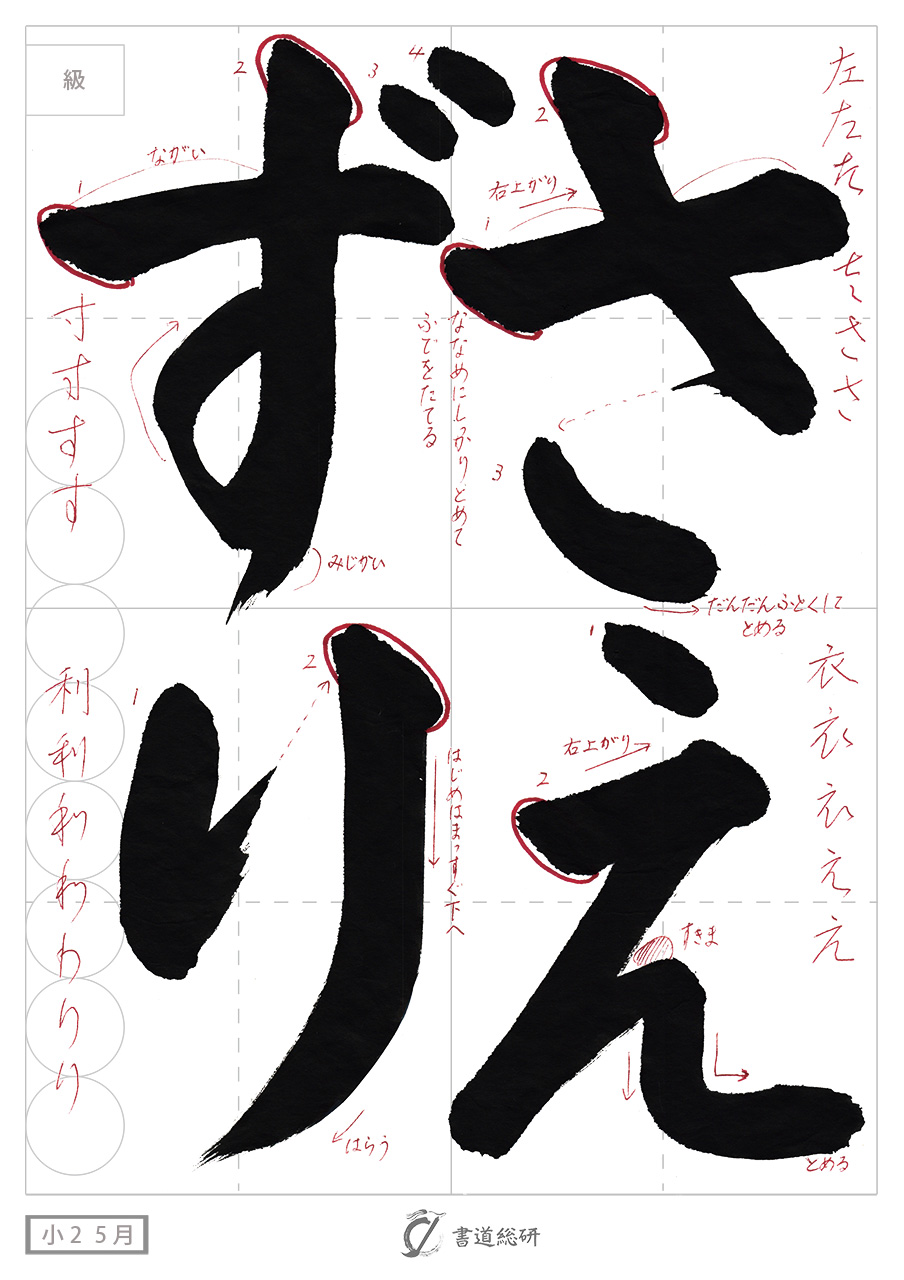 さえ
ずり
級
左左さ
ちささ
2
1
右上がり
3
ななめにしっかりとめて
ふでをたてる
だんだんふとくして
とめる
衣衣衣ええ
1
右上がり
2
すきま
とめる
4
3
2
1
ながい
みじかい
寸寸すす
2
1
はじめはまっすぐ下へ
はらう
利利利わりり
小2 5月
書道総研